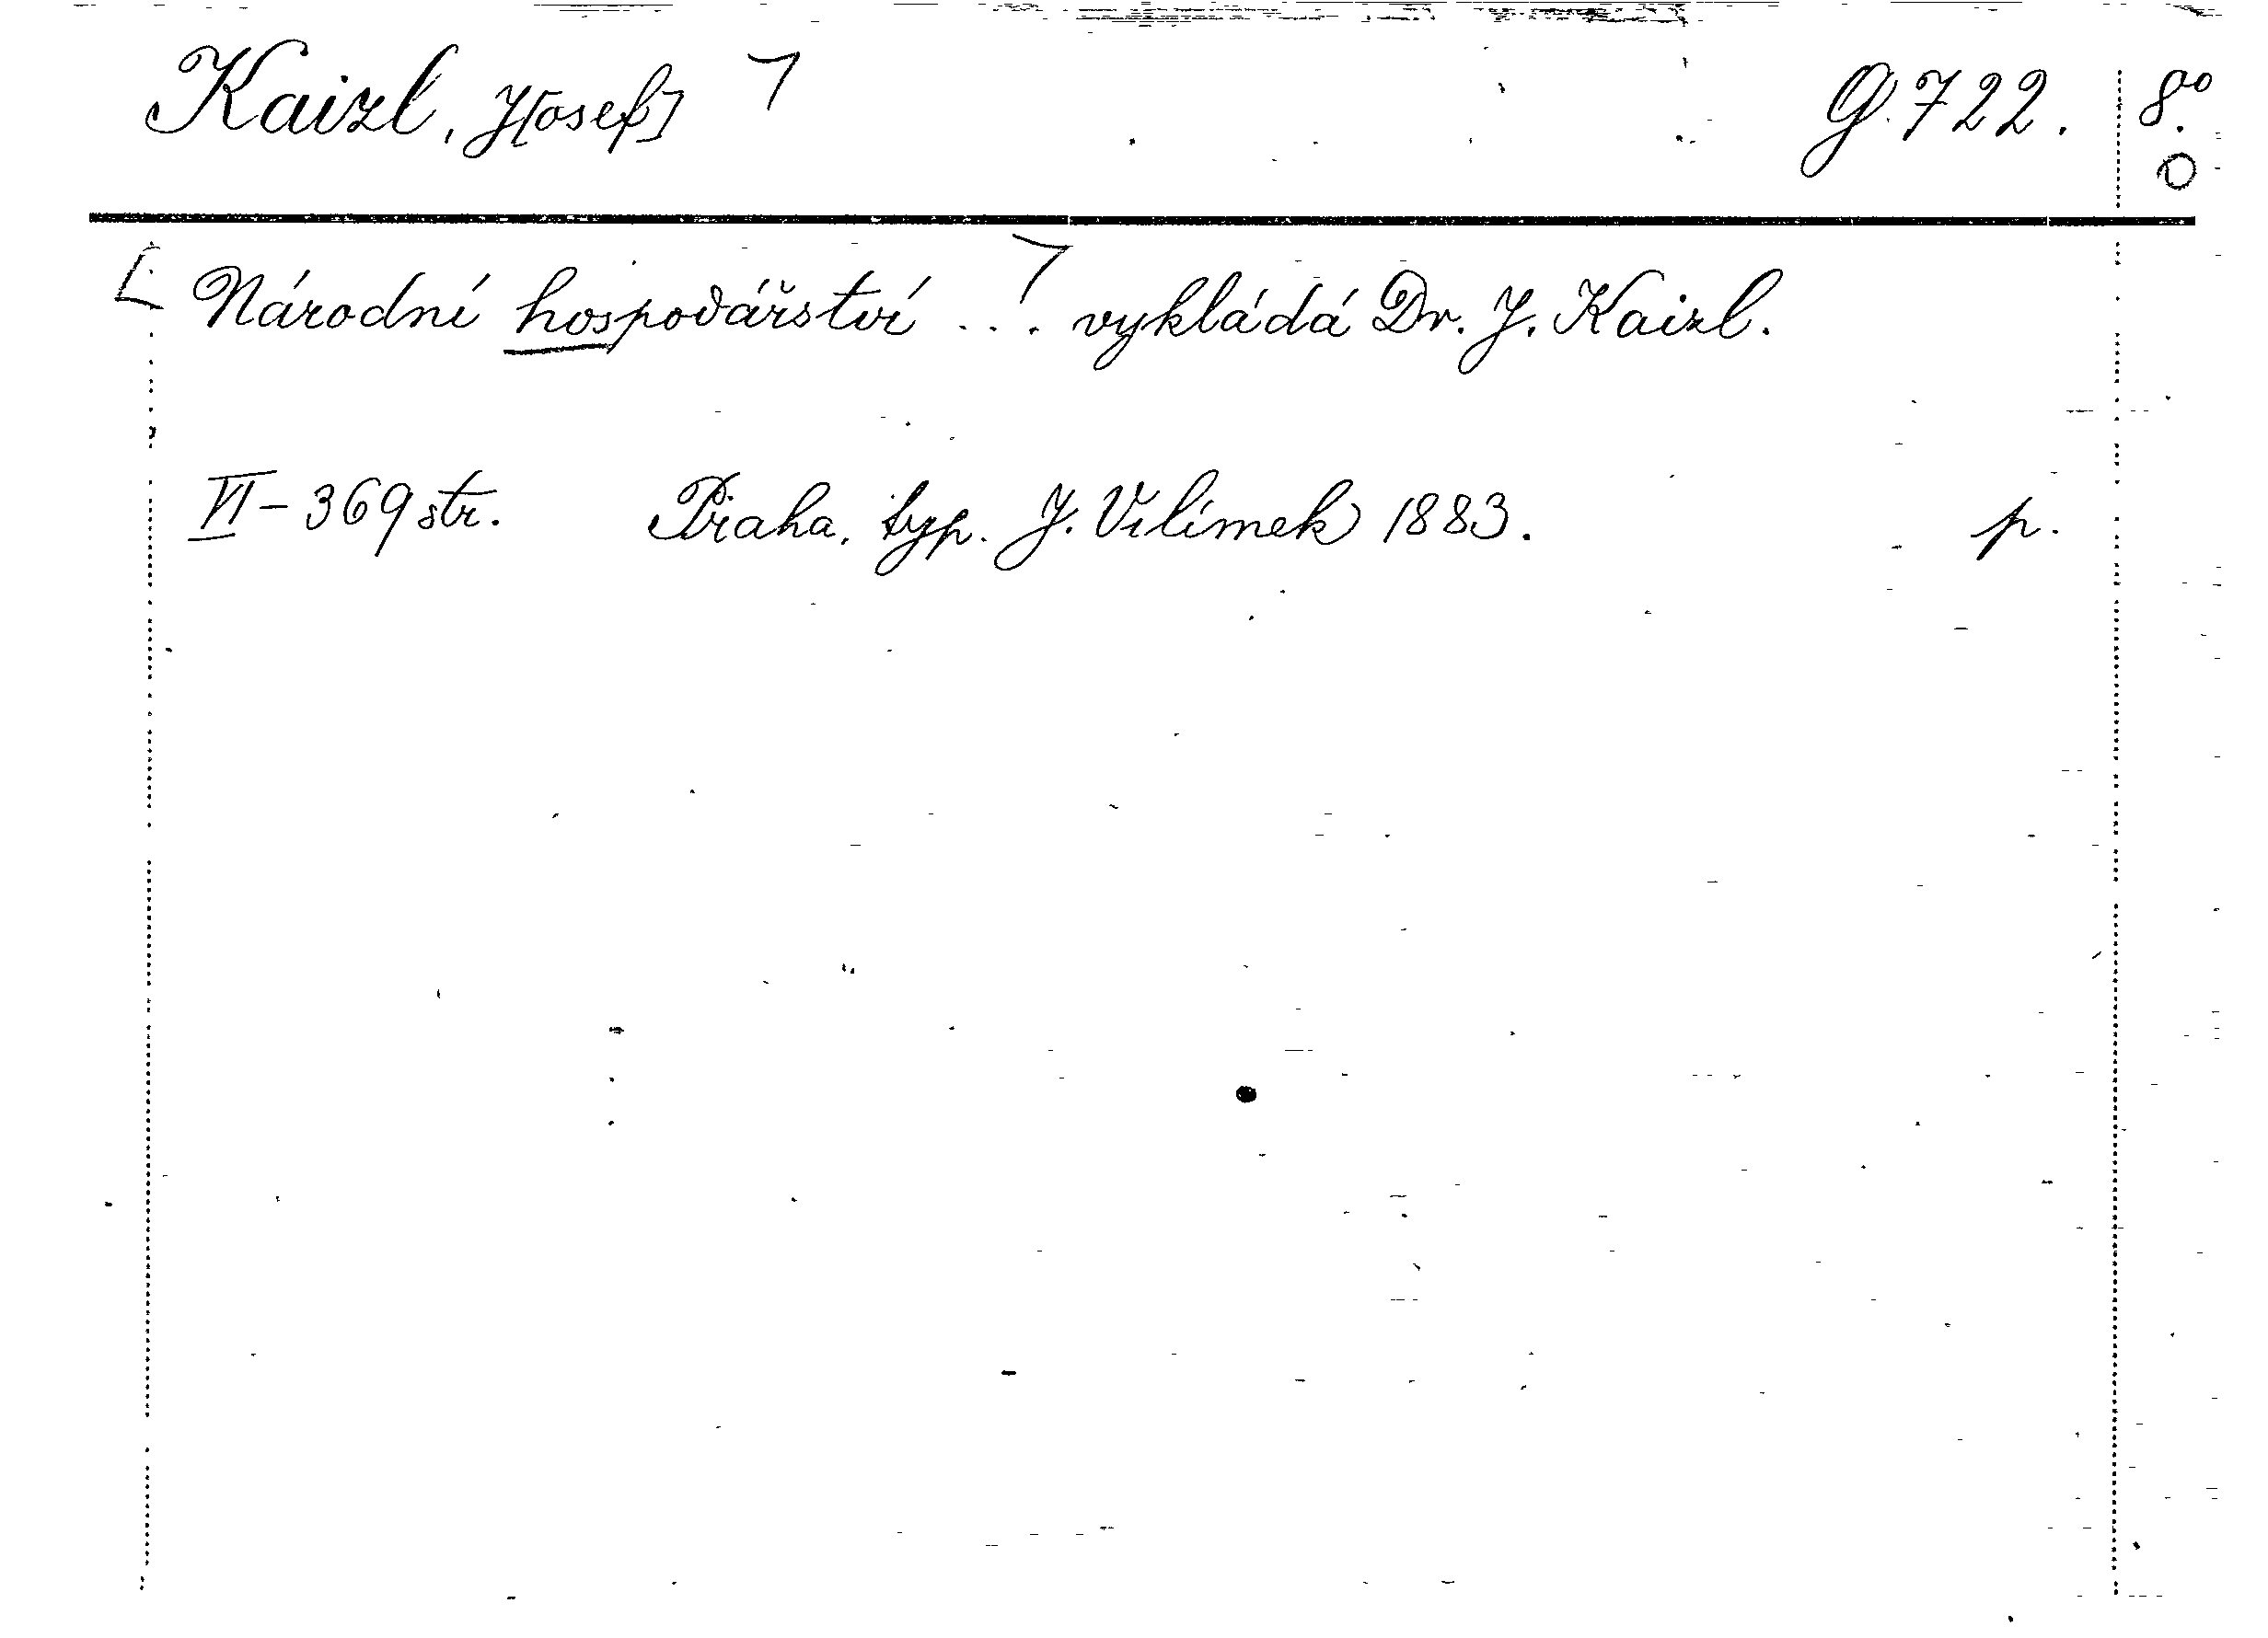 Kaizl, J[osef] ㄱ G. 722. 8°.
O
[ Národní hospodářství ...ㄱ vykládá Dr. J. Kaizl.
VI-369 str. Praha, typ. J. Vilímek 1883. p.